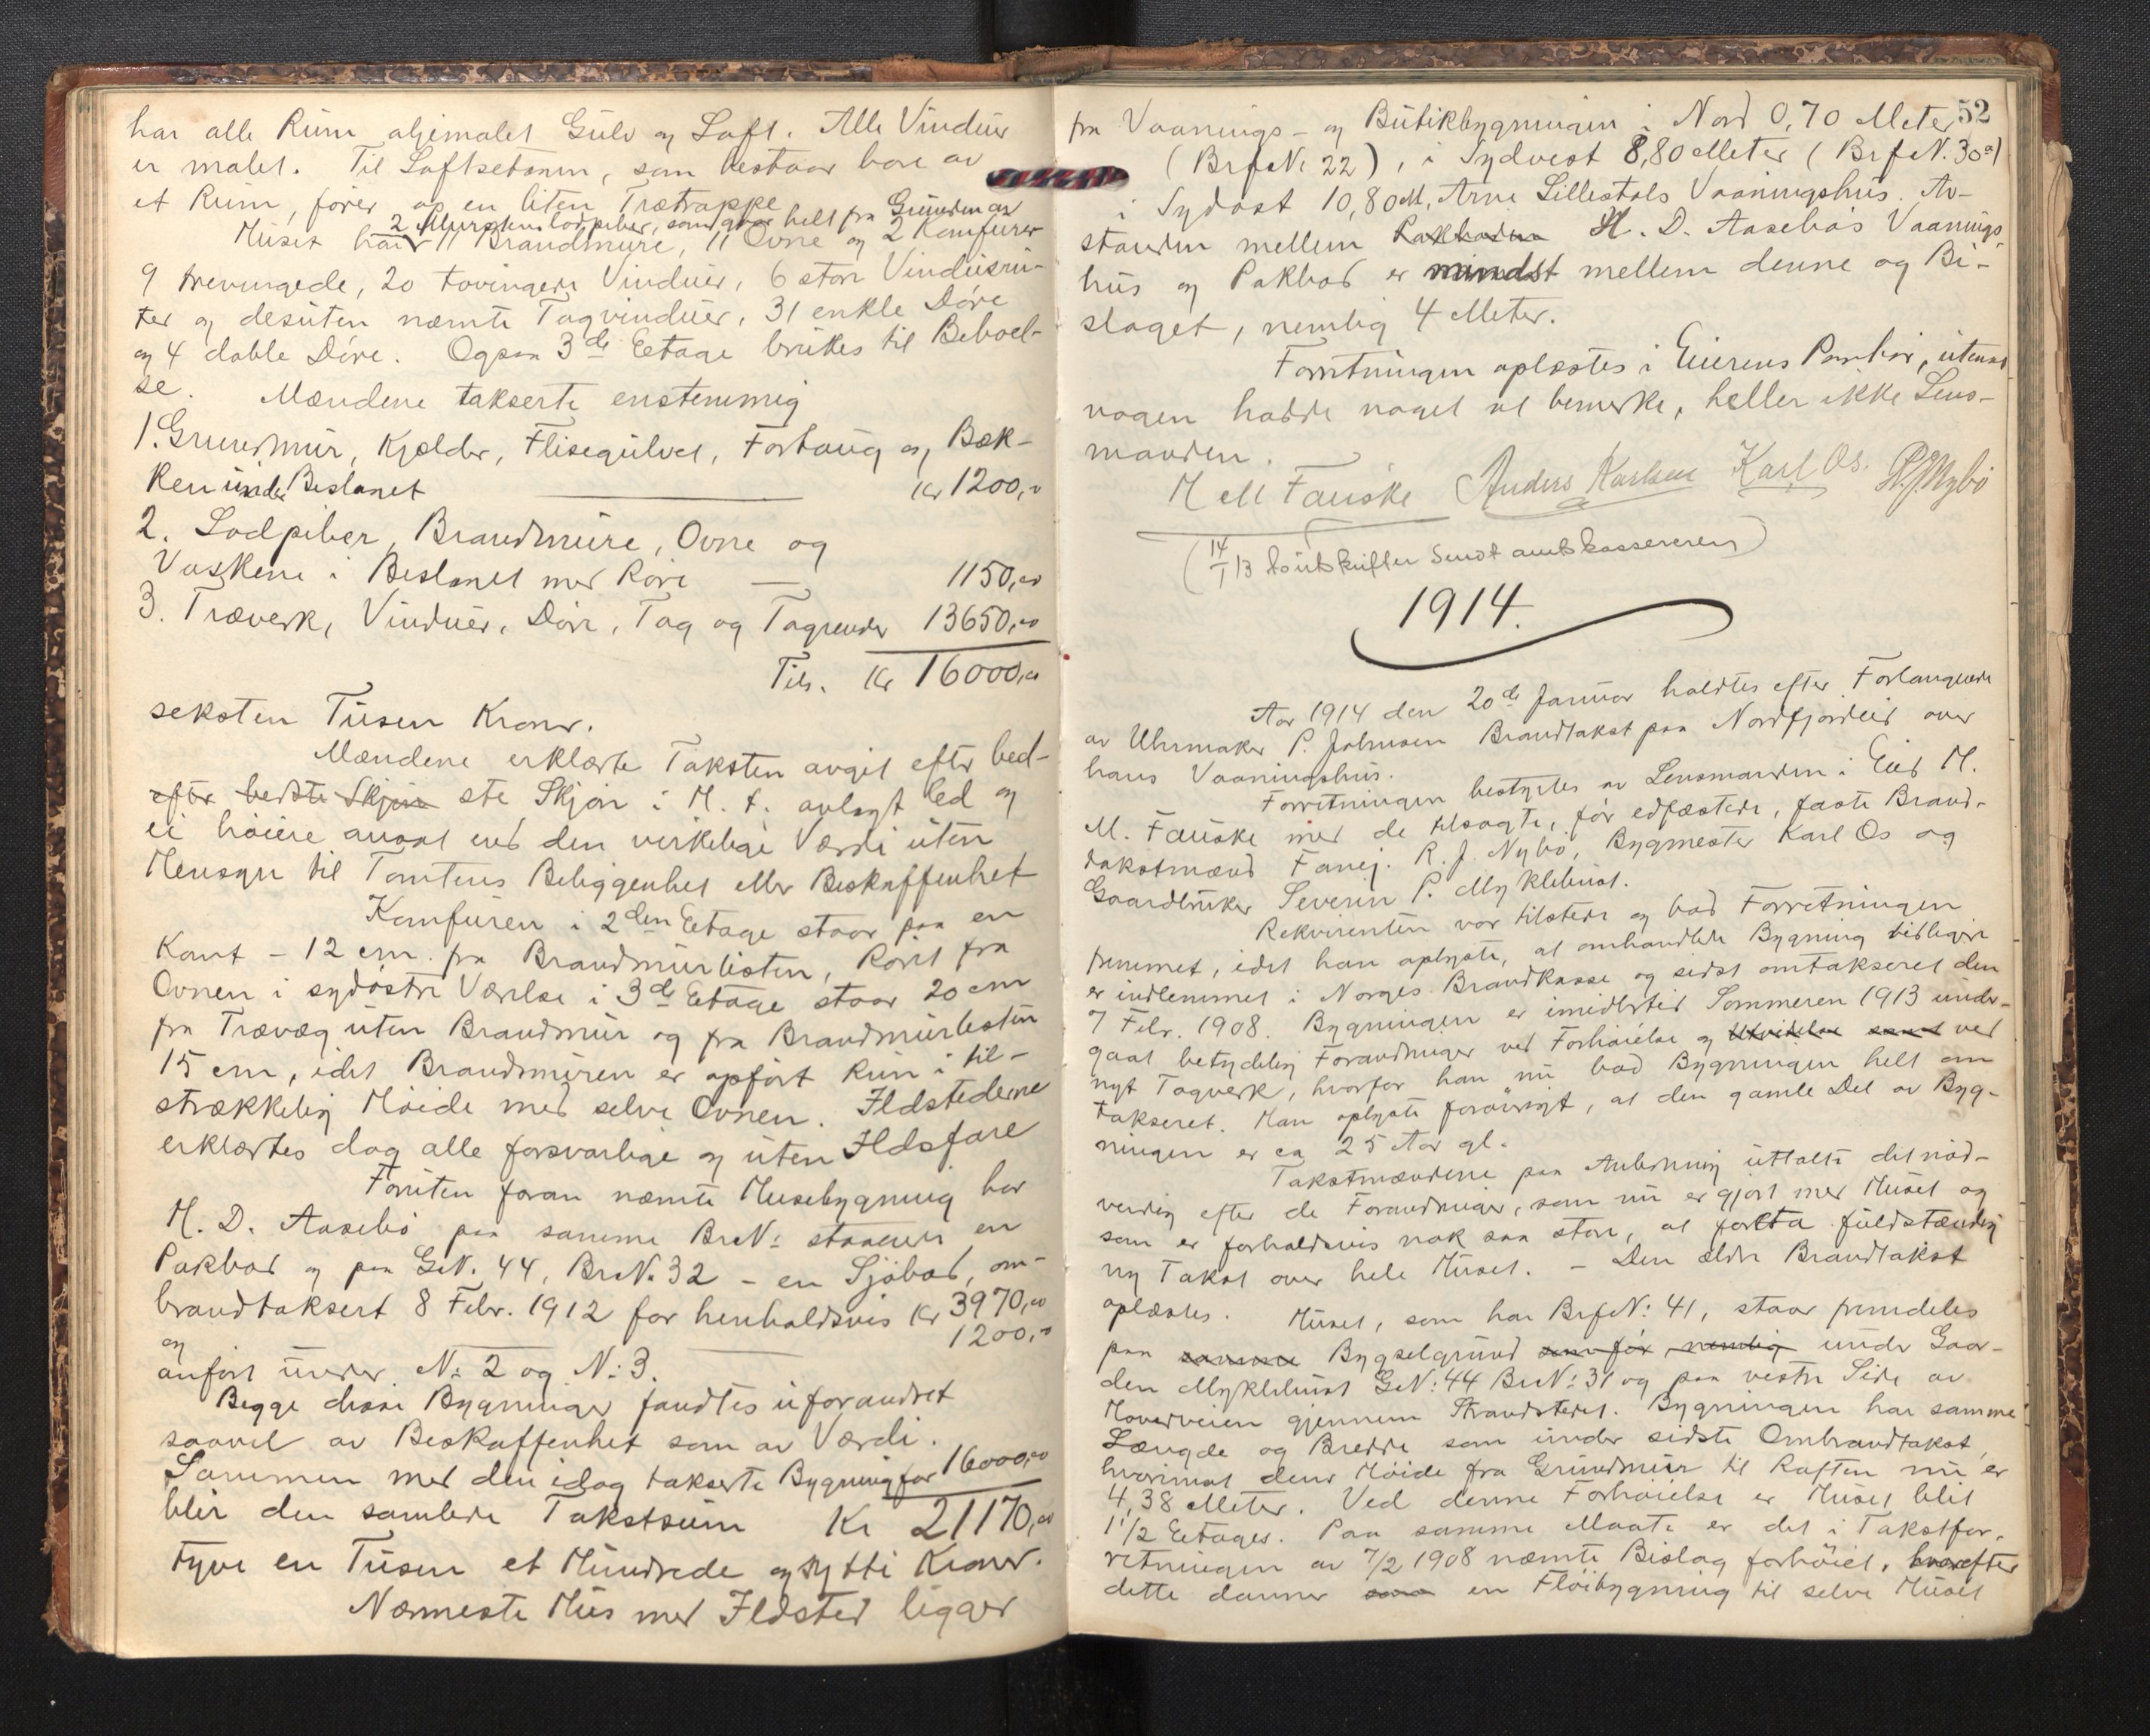 har alle Rum oljemalet Gulv og Loft. Alle Vinduer
er malet. Til Loftsetasen, som bestaar bare av
et Rum, fører op en liten Trætrappe
2 Murstens lodpiber, som gaar helt fra Grunden av
Huset har 11 Brandmure, 11 Ovne og 2 Komfurer
9 trevingede, 20 tovingede Vinduer, 6 store Vindusru-
ter og desuten nævnte Tagvinduer, 31 enkle Døre
og 4 doble Døre. Ogsaa 3de Etage brukes til Beboel-
se. Mændene takserte enstemmig
1. Grundmur, Kjelder, Flisegulvet, Forhaug og Bæk-
ken under Beslaget Kr 1200,00
2. Lodpiber, Brandmure, Ovne og
Vaskene i Beslaget med Røre 1150,00
3. Træverk, Vinduer, Døre, Tag og Tagrender 13650,00
Tils. Kr 16000,00
seksten Tusen Kroner.
Mændene erklærte Taksten avgit efter bed-
efter bedste Skjøn ste Skjøn i H. t. avlagt Ed og
ei høiere ansat end den virkelige Værdi uten
Hensyn til Tomtens Beliggenhet eller Beskaffenhet
Komfuren i 2den Etage staar paa en
Kant - 12 cm. fra Brandmurlisten, Røret fra
Ovnen i sydøstre Værelse i 3de Etage staar 20 cm
fra Trævæg uten Brandmur og fra Brandmurlisten
15 cm, idet Brandmuren er opført kun i til-
strækkelig Høide med selve Ovnen. Ildstederne
erklærtes dog alle forsvarlige og uten Ildsfare
Foruten foran nævnte Husebygning har
H. D. Aasebø paa samme BrN: staaende en
Pakbod og paa GN. 44, BrN. 32 - en Sjøbod, om-
brandtaksert 8 Febr. 1912 for henholdsvis Kr 3970,00
og 1200,00
anført under N: 2 og N: 3.
Begge disse Bygninger fandtes uforandret
saavel av Beskaffenhet som av Værdi.
Sammen med den idag takserte Bygning for 16000,00
blir den samlede Takstsum Kr 21170,00
tyve en Tusen et Hundrede og sytti Kroner.
Nærmeste Hus med Ildsted ligger
52
fra Vaanings- og Butikbygningen i Nord 0,70 Meter
(BrfN. 22), i Sydvest 8,80 Meter (BrfN. 30a)
i Sydost 10,80 M, Arne Lillestøls Vaaningshus. Av-
standen mellem Pakboden H. D. Aasebøs Vaanings-
hus og Pakbod er mindst mellem denne og Bi-
slaget, nemlig 4 Meter.
Forretningen oplæstes i Eierens Paahør, uten at
nogen hadde noget at bemerke, heller ikke Lens-
manden.
M M Fauske Anders Karlsen Karl Os. R. J. Nybø
(14/1 13 to utskrifter sendt amtskassereren)
1914.
Aar 1914 den 20de Januar holdtes efter Forlangende
av Uhrmaker P. Johnsen Brandtakst paa Nordfjordeid over
hans Vaaningshus.
Forretningen bestyrtes av Lensmanden i Eid M.
M. Fauske med de tilsagte, før edfæstede, faste Brand-
takstmænd Fanej. R. J. Nybø, Bygmester Karl Os og
Gaardbruker Severin P. Myklebust.
Rekvirenten var tilstede og bad Forretningen
fremmet, idet han oplyste, at omhandlede Bygning tidligere
er indlemmet i Norges Brandkasse og sidst omtakseret den
7 Febr. 1908. Bygningen er imidlertid Sommeren 1913 under-
gaat betydelig Forandringer ved Forhøielse og Utvidelse samt ved
nyt Tagverk, hvorfor han nu bad Bygningen helt om
takseret. Han oplyste forøvrigt, at den gamle Del av Byg-
ningen er ca 25 Aar gl.
Takstmændene paa Anledning uttalte det nød-
vendig efter de Forandringer, som nu er gjort med Huset og
som er forholdsvis nok saa store, at foreta fuldstændig
ny Takst over hele Huset. - Den ældre Brandtakst
oplæstes. Huset, som har BrfN: 41, staar fremdeles
paa samme Bygselgrund som før, nemlig under Gaar-
den Myklebust GN: 44 BrN: 31 og paa vestre Side av
Hovedveien gjennem Strandstedet. Bygningen har samme
Længde og Bredde som under sidste Ombrandtakst,
hvorimot dens Høide fra Grundmur til Raften nu er
4,38 Meter. Ved denne Forhøielse er Huset blit
1 1/2 Etages. Paa samme Maate er det i Takstfor-
retningen av 7/2 1908 nævnte Bislag forhøiet, hvorefter
dette danner som en Fløibygning til selve Huset